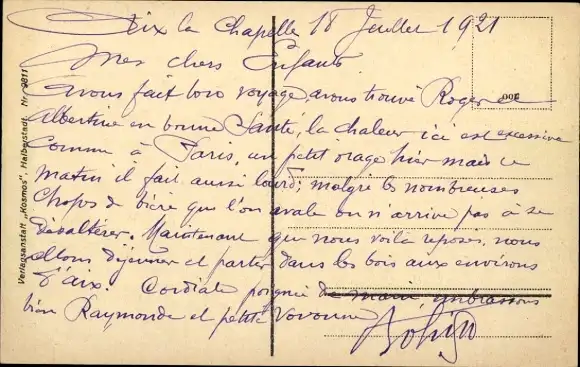 Aix la Chapelle 18 Juillet 1921
Mes chers Enfants
Avons fait bon voyage, avons trouvé Roger et
Albertine en bonne Santé, la chaleur ici est excessive
comme à Paris, un petit orage hier mais ce
matin il fait aussi lourd; malgré les nombreuses
Chopes de bière que l'on avale on n'arrive pas à se
désaltérer. Maintenant que nous voilà reposés, nous
allons déjeuner et partir dans les bois aux environs
d'Aix. Cordiale poignée de main, embrassons
bien Raymonde et petite Vovonne
Verlagsanstalt „Kosmos", Halberstadt. Nr. 9811